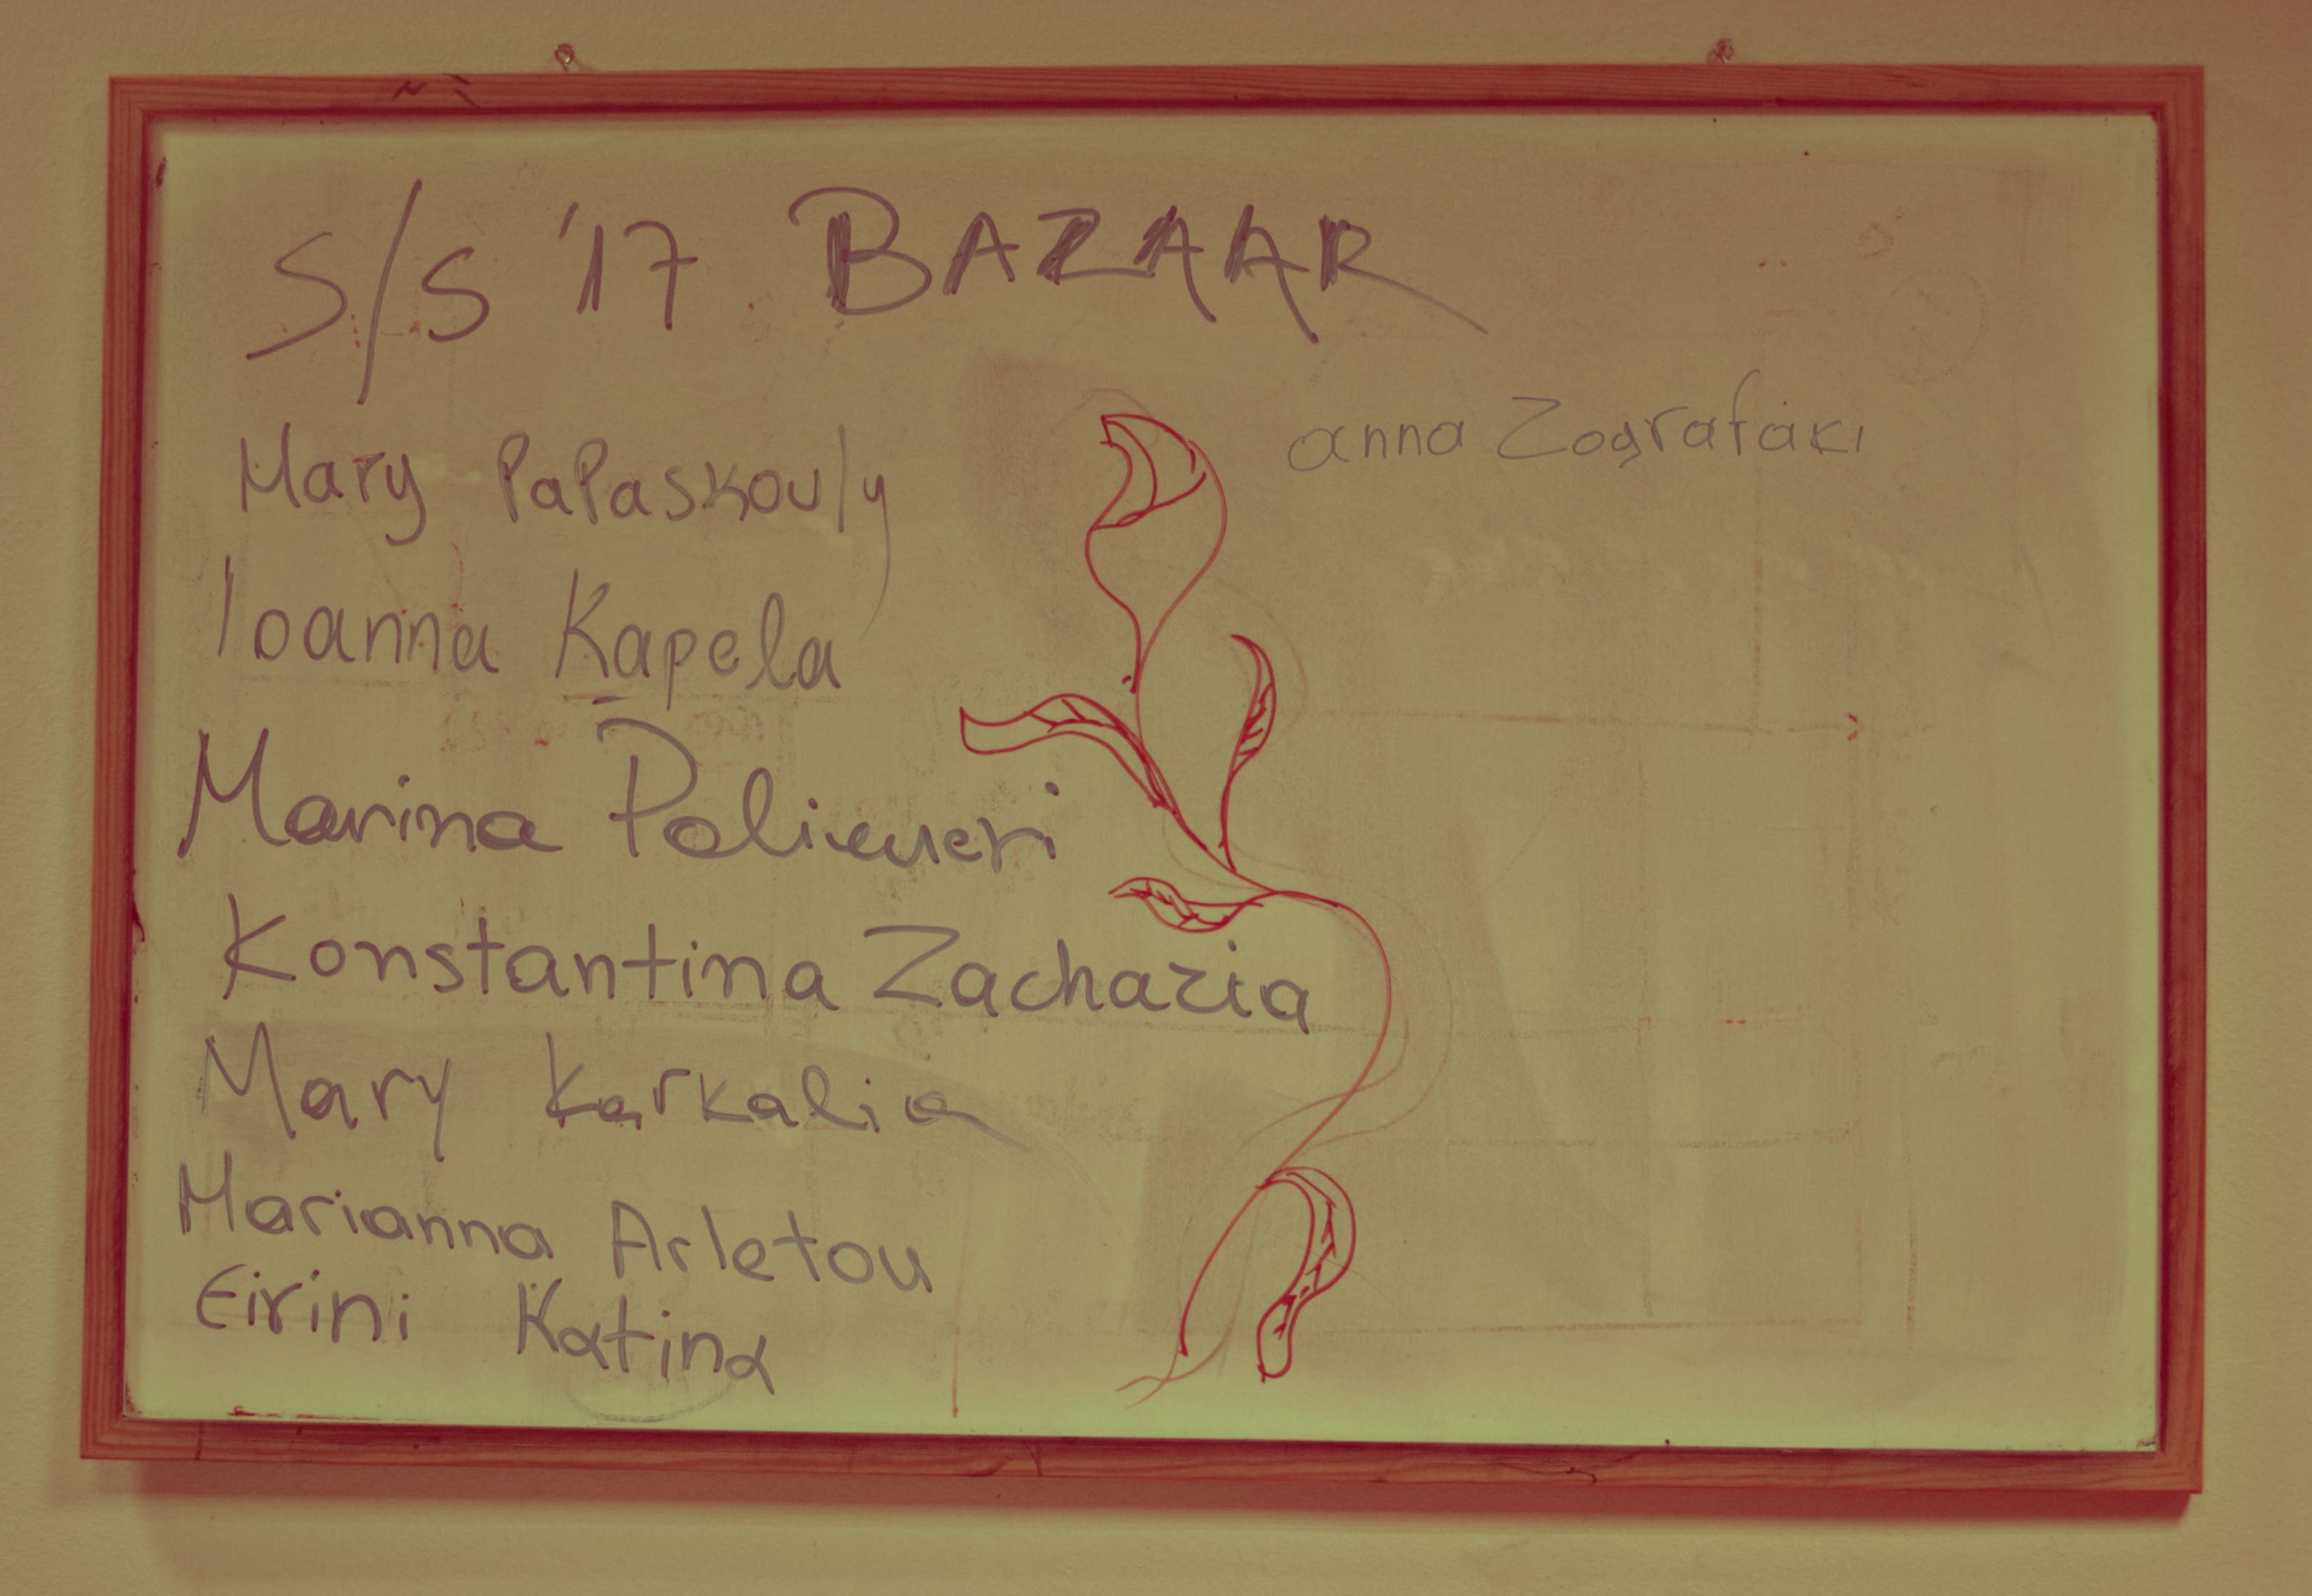 S/S '17 BAZAAR
Mary PaPaskouly
Ioanna Kapela
Marina
Konstantina Zacharia
Mary Karkalia
Marianna Arletou
Eirini Katina
anna Zografaki